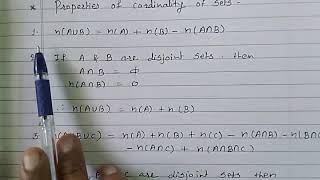 * Properties of cardinality of sets -
1. n(A∪B) = n(A) + n(B) - n(A∩B)
If A & B are disjoint sets. then
A∩B = ϕ
n(A∩B) = 0
∴ n(A∪B) = n(A) + n(B)
3. n(A∪B∪C) - n(A) + n(B) + n(C) - n(A∩B) - n(B∩
- n(A∩C) + n(A∩B∩C)
B, C are disjoint sets then